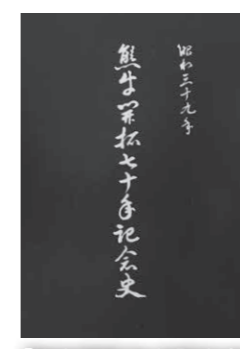 昭和三十九年
熊牛開拓七十年記念史